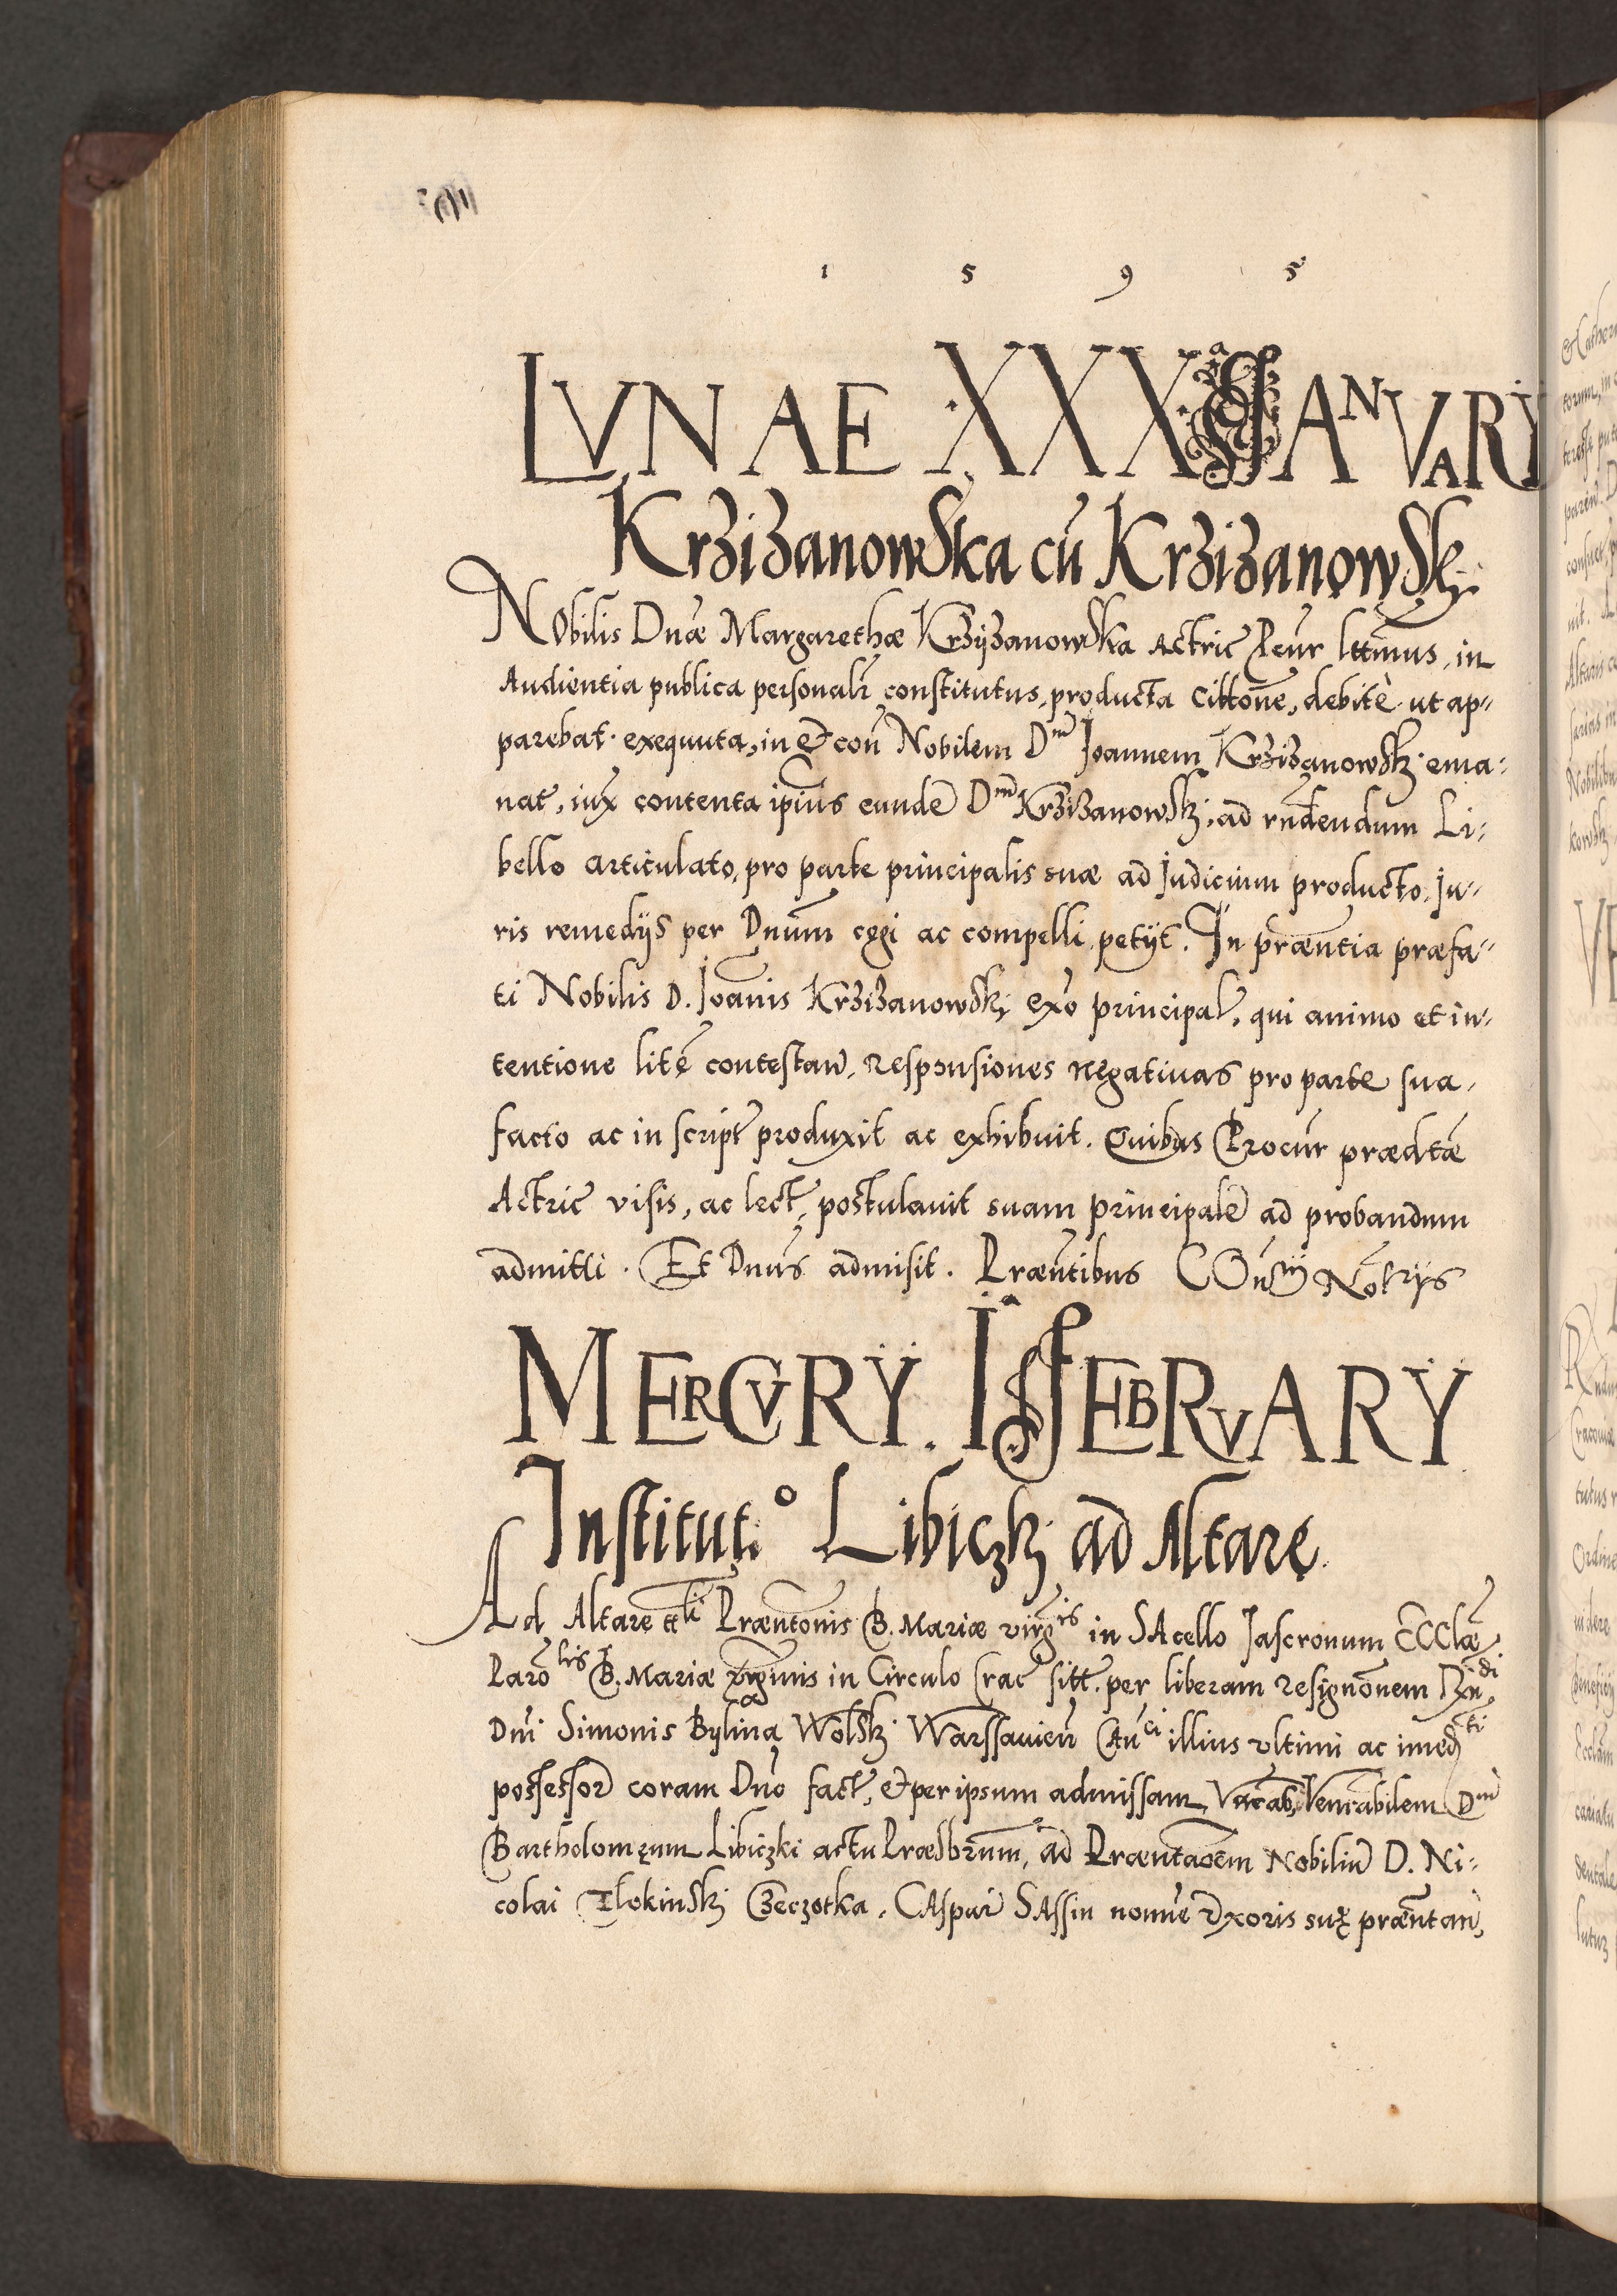 1 5 9 5
LVNAE XXXa IANVARY
Krziżanowska cū Krziżanowskį
NObilis Dnæ Margarethæ Krzyżanowska Actric Pcur lttimus, in
Audientia publica personalr constitutus, producta Cittone, debitè ut ap-
parebat exequuta, in & con Nobilem Dnū Joannem Krziżanowskį ema-
nat, iux contenta ipius eundē Dnū Krziżanowskį, ad rndendum Li-
bello articulato, pro parte principalis suæ ad Judicium producto, Ju-
ris remedijs per Dnum cogi ac compelli petijt. In præntia præfa-
ti Nobilis D. Joanis Krziżanowskį ex° principal, qui animo et in-
tentione litē contestan, Responsiones negatiuas pro parte sua
facto ac in script produxit ac exhibuit. Quibus Procur prædtæ
Actric visis, ac lect, postulauit suam principalē ad probandum
admitti. Et Dnus admisit. Præntibus COntij Notrijs
MERCVRY. Ia FEBRVARY
Institut° Libiczkį ad Altare
Ad Altare ttli Præntonis B. Mariæ virgis in SAcello Jascronum ECClæ
Parolis B. Mariæ virginis in Circulo Crac sitt. per liberam Resignonem Rndi
Dni Simonis Bylina Wolskį Warssauien Cunci illius vltimi ac imedti
possessor coram Dno fact, & per ipsum admissam, Venerabilem Dnū
Bartholomęum Libiczki actu Præsbrum, ad Præntaoem Nobiliū D. Ni-
colai Ilokinskį Czeczotka, CAspar SAssin nomie Vxoris suę præntan,